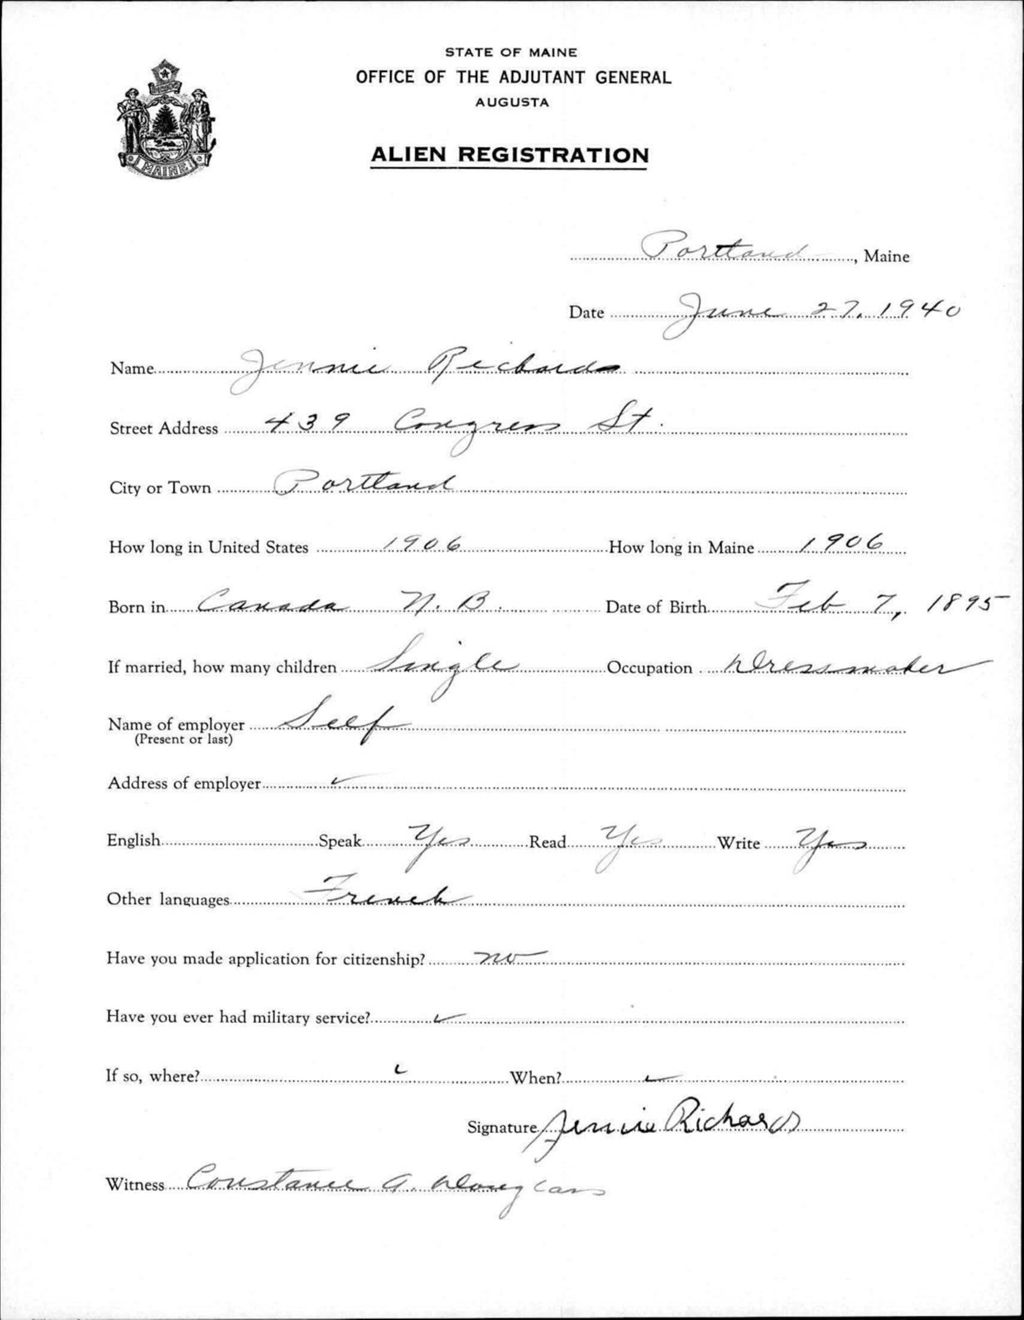 STATE OF MAINE
OFFICE OF THE ADJUTANT GENERAL
AUGUSTA
ALIEN REGISTRATION
MAINE
Portland, Maine
Date June 27, 1940
Name Jennie Richards
Street Address 439 Congress St.
City or Town Portland
How long in United States 1906 How long in Maine 1906
Born in Canada N. B. Date of Birth Feb 7, 1895
If married, how many children Single Occupation Dressmaker
Name of employer Self
(Present or last)
Address of employer ✓
English Speak Yes Read Yes Write Yes
Other languages French
Have you made application for citizenship? no
Have you ever had military service? ✓
If so, where? ✓ When? ✓
Signature Jennie Richards
Witness Constance A. Douglass